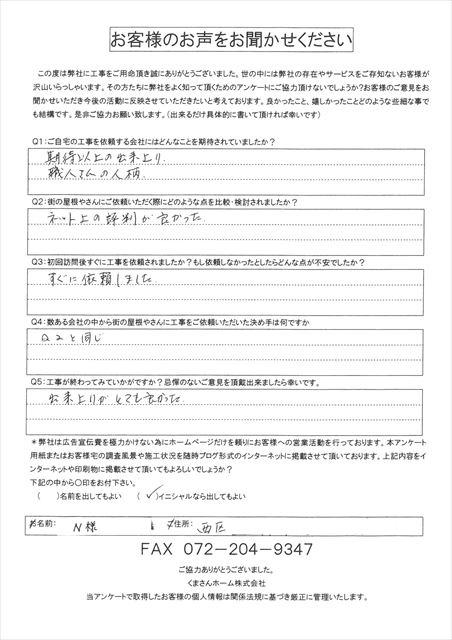 お客様のお声をお聞かせください
この度は弊社に工事をご用命頂き誠にありがとうございました。世の中には弊社の存在やサービスをご存知ないお客様が
沢山いらっしゃいます。その方たちに弊社をよく知って頂くためのアンケートにご協力頂けないでしょうか?お客様のご意見をお
聞かせいただき今後の活動に反映させていただきたいと考えております。良かったこと、嬉しかったことどのような些細な事で
も結構です。是非ご協力お願い致します。(出来るだけ具体的に書いて頂ければ幸いです)
Q1:ご自宅の工事を依頼する会社にはどんなことを期待されていましたか?
期待以上の出来上り
職人さんの人柄
Q2:街の屋根やさんにご依頼いただく際にどのような点を比較・検討されましたか?
ネット上の評判が良かった
Q3:初回訪問後すぐに工事を依頼されましたか?もし依頼しなかったとしたらどんな点が不安でしたか?
すぐに依頼しました
Q4:数ある会社の中から街の屋根やさんに工事をご依頼いただいた決め手は何ですか
Q2と同じ
Q5:工事が終わってみていかがですか?忌憚のないご意見を頂戴出来ましたら幸いです。
出来上りがとても良かった
*弊社は広告宣伝費を極力かけない為にホームページだけを頼りにお客様への営業活動を行っております。本アンケート
用紙またはお客様宅の調査風景や施工状況を随時ブログ形式のインターネットに掲載させて頂いております。上記内容をイ
ンターネットや印刷物に掲載させて頂いてもよろしいでしょうか?
下記の中から〇印をお付下さい。
( )名前を出してもよい (✓)イニシャルなら出してもよい
お名前: N様 ご住所: 西区
FAX 072-204-9347
ご協力ありがとうございました。
くまさんホーム株式会社
当アンケートで取得したお客様の個人情報は関係法規に基づき厳正に管理いたします。